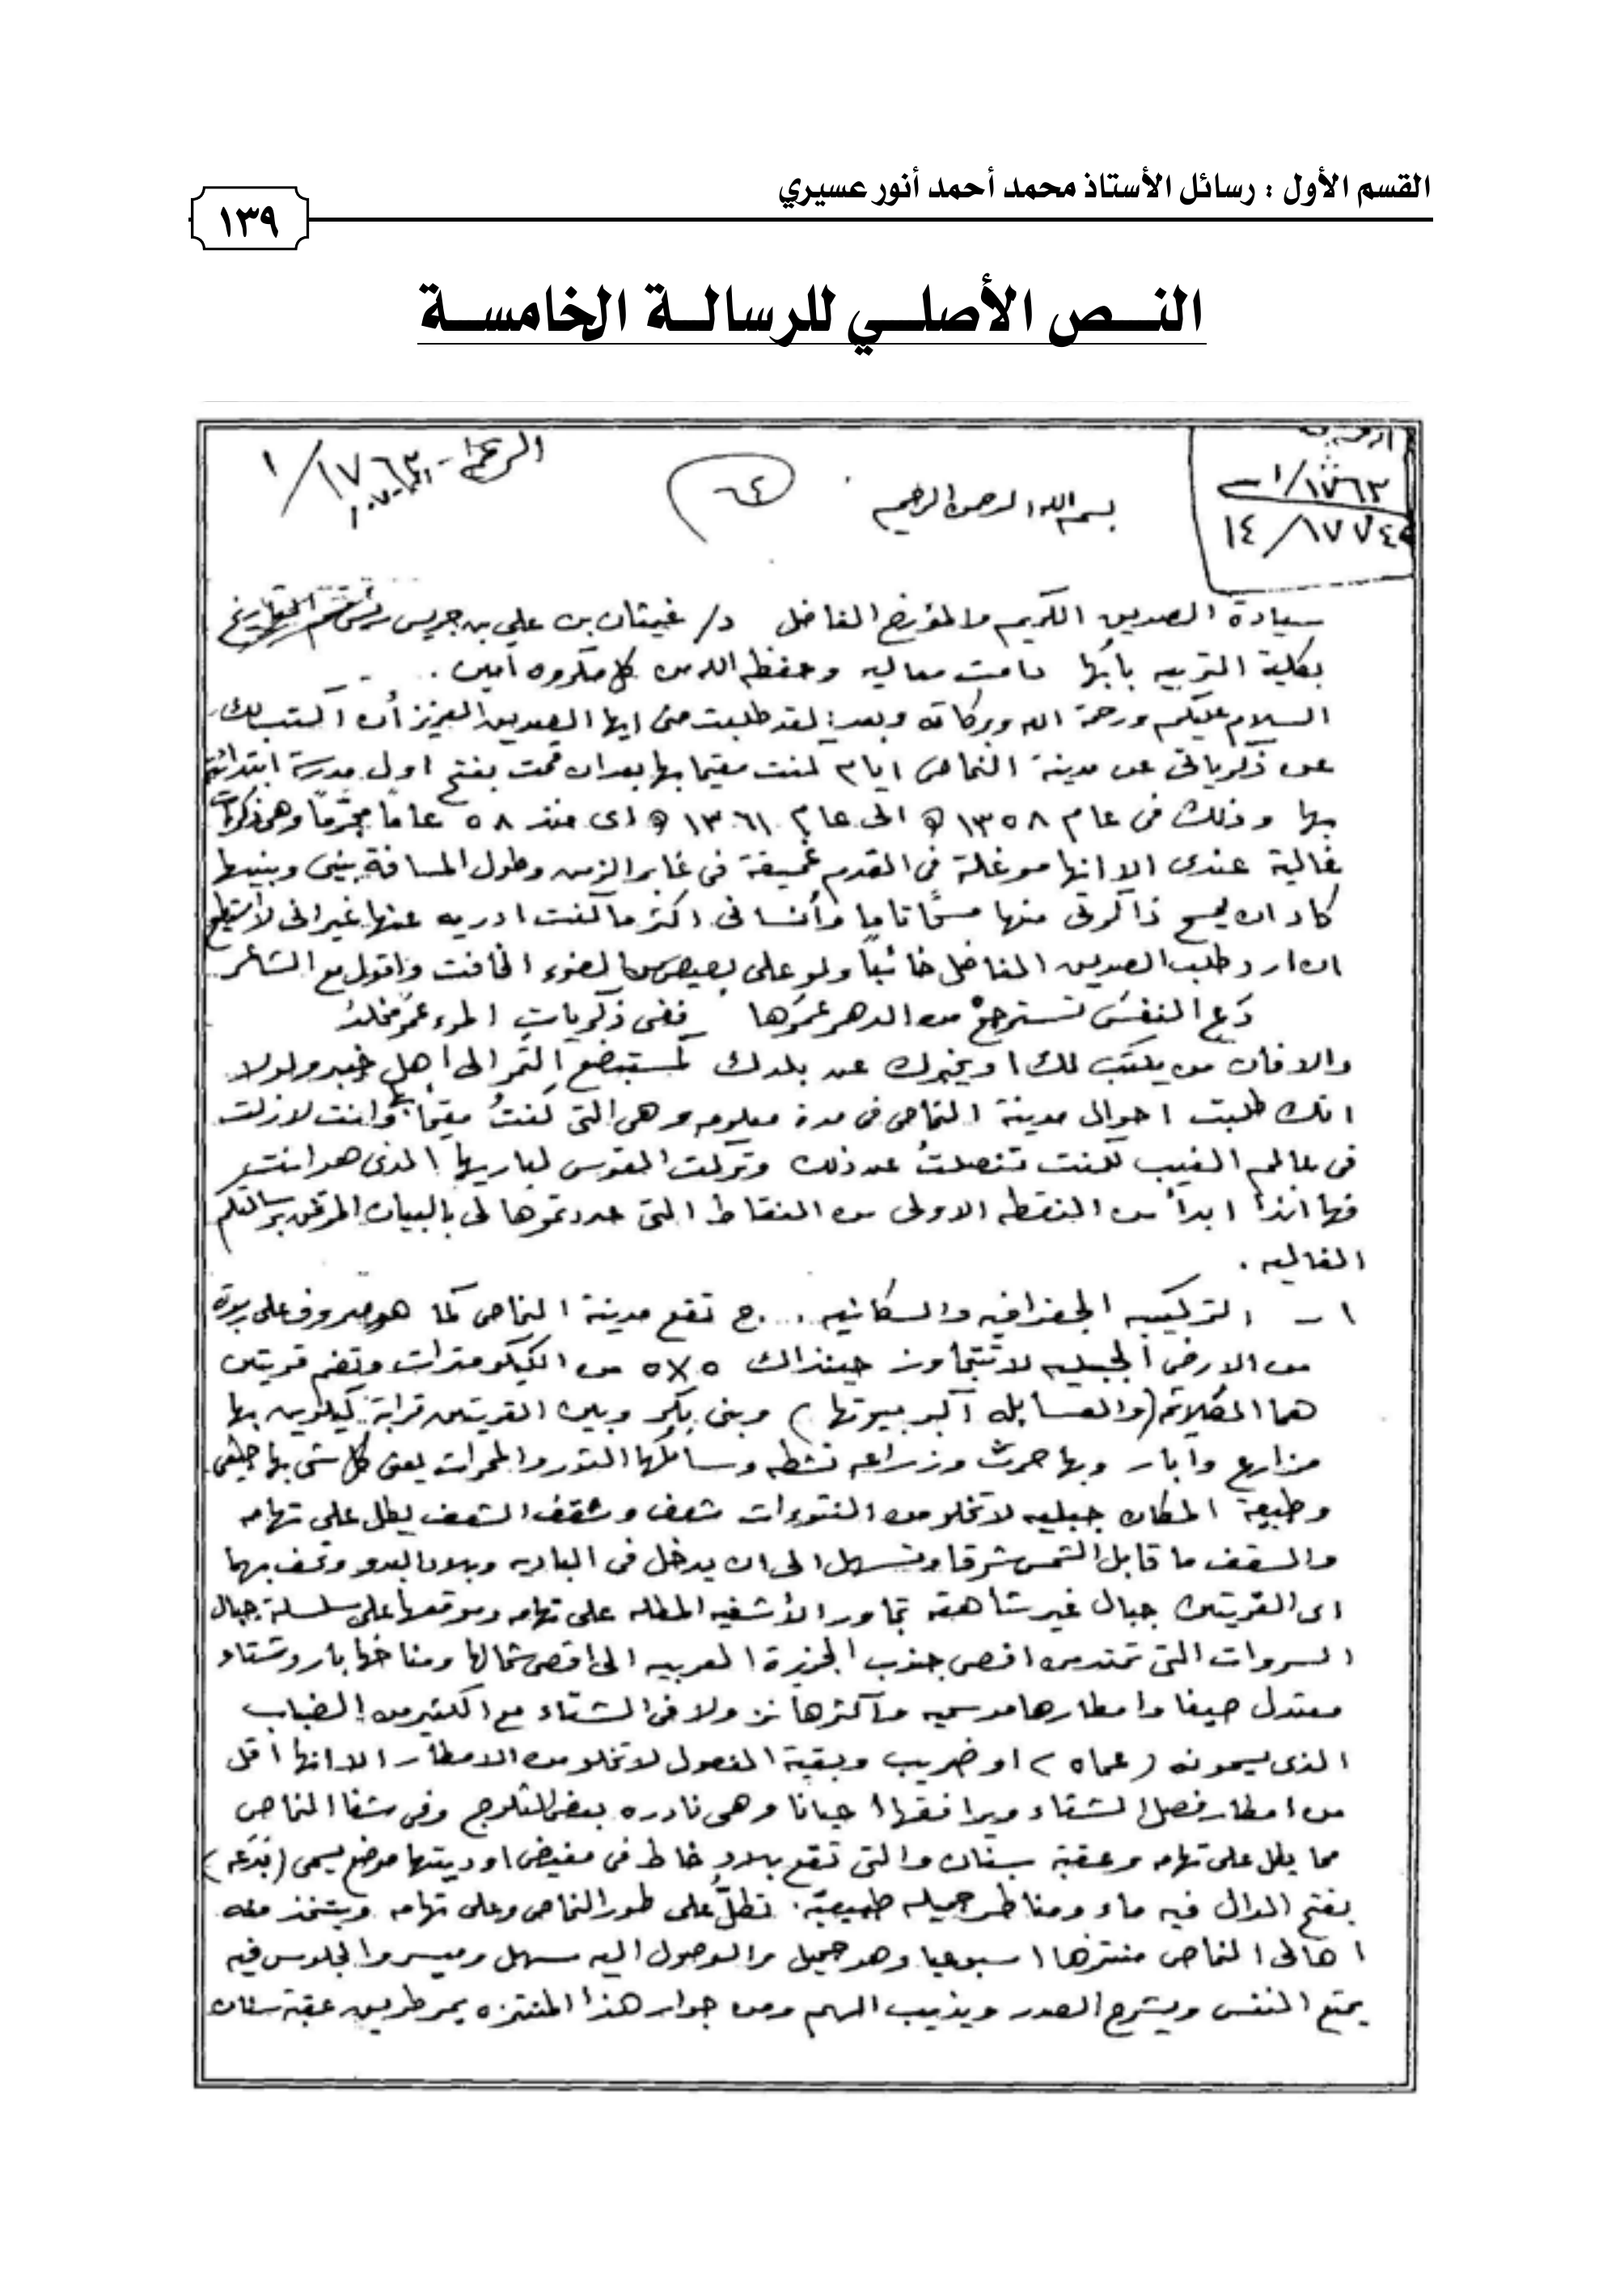 القسم الأول : رسائل الأستاذ محمد أحمد أنور عسيري
١٣٩
النـــص الأصلـــي للرسالــة الخامســة
١/١٧٦٣
٦٤
بسم الله الرحمن الرحيم
١/١٧٦٣
١٤/١٧٧٤
سيادة الصديق الكريم والمؤرخ الفاضل د/ غيثان بن علي بن جريس رئيس قسم التاريخ
بكلية التربيه بأبها دامت معاليه وحفظه الله من كل مكروه آمين .
السلام عليكم ورحمة الله وبركاته وبعد : لقد طلبت منى ايها الصديق العزيز أن اكتب لك
عن ذكرياتى عن مدينة النماص ايام كنت مقيما بها بعد ان قمت بفتح اول مدرسة ابتدائية
بها وذلك فى عام ١٣٥٨ ه الى عام ١٣٦١ ه اى منذ ٥٨ عاماً مجرّماً وهى ذكريات
غالية عندى الا انها موغلة فى القدم عميقة فى غابر الزمن وطول المسافة بينى وبينها
كاد ان يمسح ذاكرتى منها مسحًا تاما وأنسانى اكثر ما كنت ادريه عنها غير انى لا أستطيع
ان ارد طلب الصديق الفاضل خائباً ولو على بصيص من الضوء الخافت واقول مع الشاعر
دَع النفسَ تسترجعْ من الدهر عمرَها ففى ذكرياتِ المرء عمرٌ مخلدُ
والا فان من يكتب لك او يخبرك عن بلدك كمستبضع التمر الى اهل خيبر ولولا
انك طلبت احوال مدينة النماص فى مدة معلومه وهى التى كنتُ مقيماً بها وانت لازلت
فى عالم الغيب لكنت تنصلتُ عن ذلك وتركت القوس لباريها الذى هو انت
فها انذا ابدأ من النقطه الاولى من النقاط التى حددتموها لى بالبيان المرفق برسالتكم
الغاليه .
١ - التركيبه الجغرافيه والسكانيه ... ج تقع مدينة النماص كما هو معروف على
من الارض الجبليه لا تتجاوز حينذاك ٥×٥ من الكيلومترات وتضم قريتين
هما (والعسابله آكبر بيوتها) وبنى بكر وبين القريتين قرابة كيلوين بها
مزارع وابار وبها حرث وزراعه نشطه وسائلها الثور والمحراث يعنى كل شى بها طبيعى
وطبيعة المكان جبليه لا تخلو من النتوءات شعف وشقف الشعف يطل على تهامه
والسقف ما قابل الشمس شرقا وتسهل الى ان يدخل فى الباديه وبلاد البدو وتحف بهما
اى القريتين جبال غير شاهقة تجاور الأشفيه المطله على تهامه وموقعها على سلسلة جبال
السروات التى تمتد من اقصى جنوب الجزيرة العربيه الى اقصى شمالها ومناخها بارد شتاء
معتدل صيفا وامطارها موسميه وأكثرها نزولا فى الشتاء مع الكثير من الضباب
الذى يسمونه (عماه) او ضريب وبقية الفصول لا تخلو من الامطار الا انها أقل
من امطار فصل الشتاء ويرافقها احيانا وهى نادره بعض الثلوج وفى شفا النماص
مما يطل على تهامه وعقبة سنان والتى تقع بلاد خاط فى مفيض اوديتها موضع يسمى (فدَعه)
بفتح الدال فيه ماء ومناظر جميله طبيعية . تطلُّ على طور النماص وعلى تهامه ويتخذ منه
اهالى النماص منتزها اسبوعيا وهو جميل والوصول اليه سهل وميسر والجلوس فيه
يمتع النفس ويشرح الصدر ويذهب الهم ومن جوار هذا المنتزه يمر طريق عقبة سنان